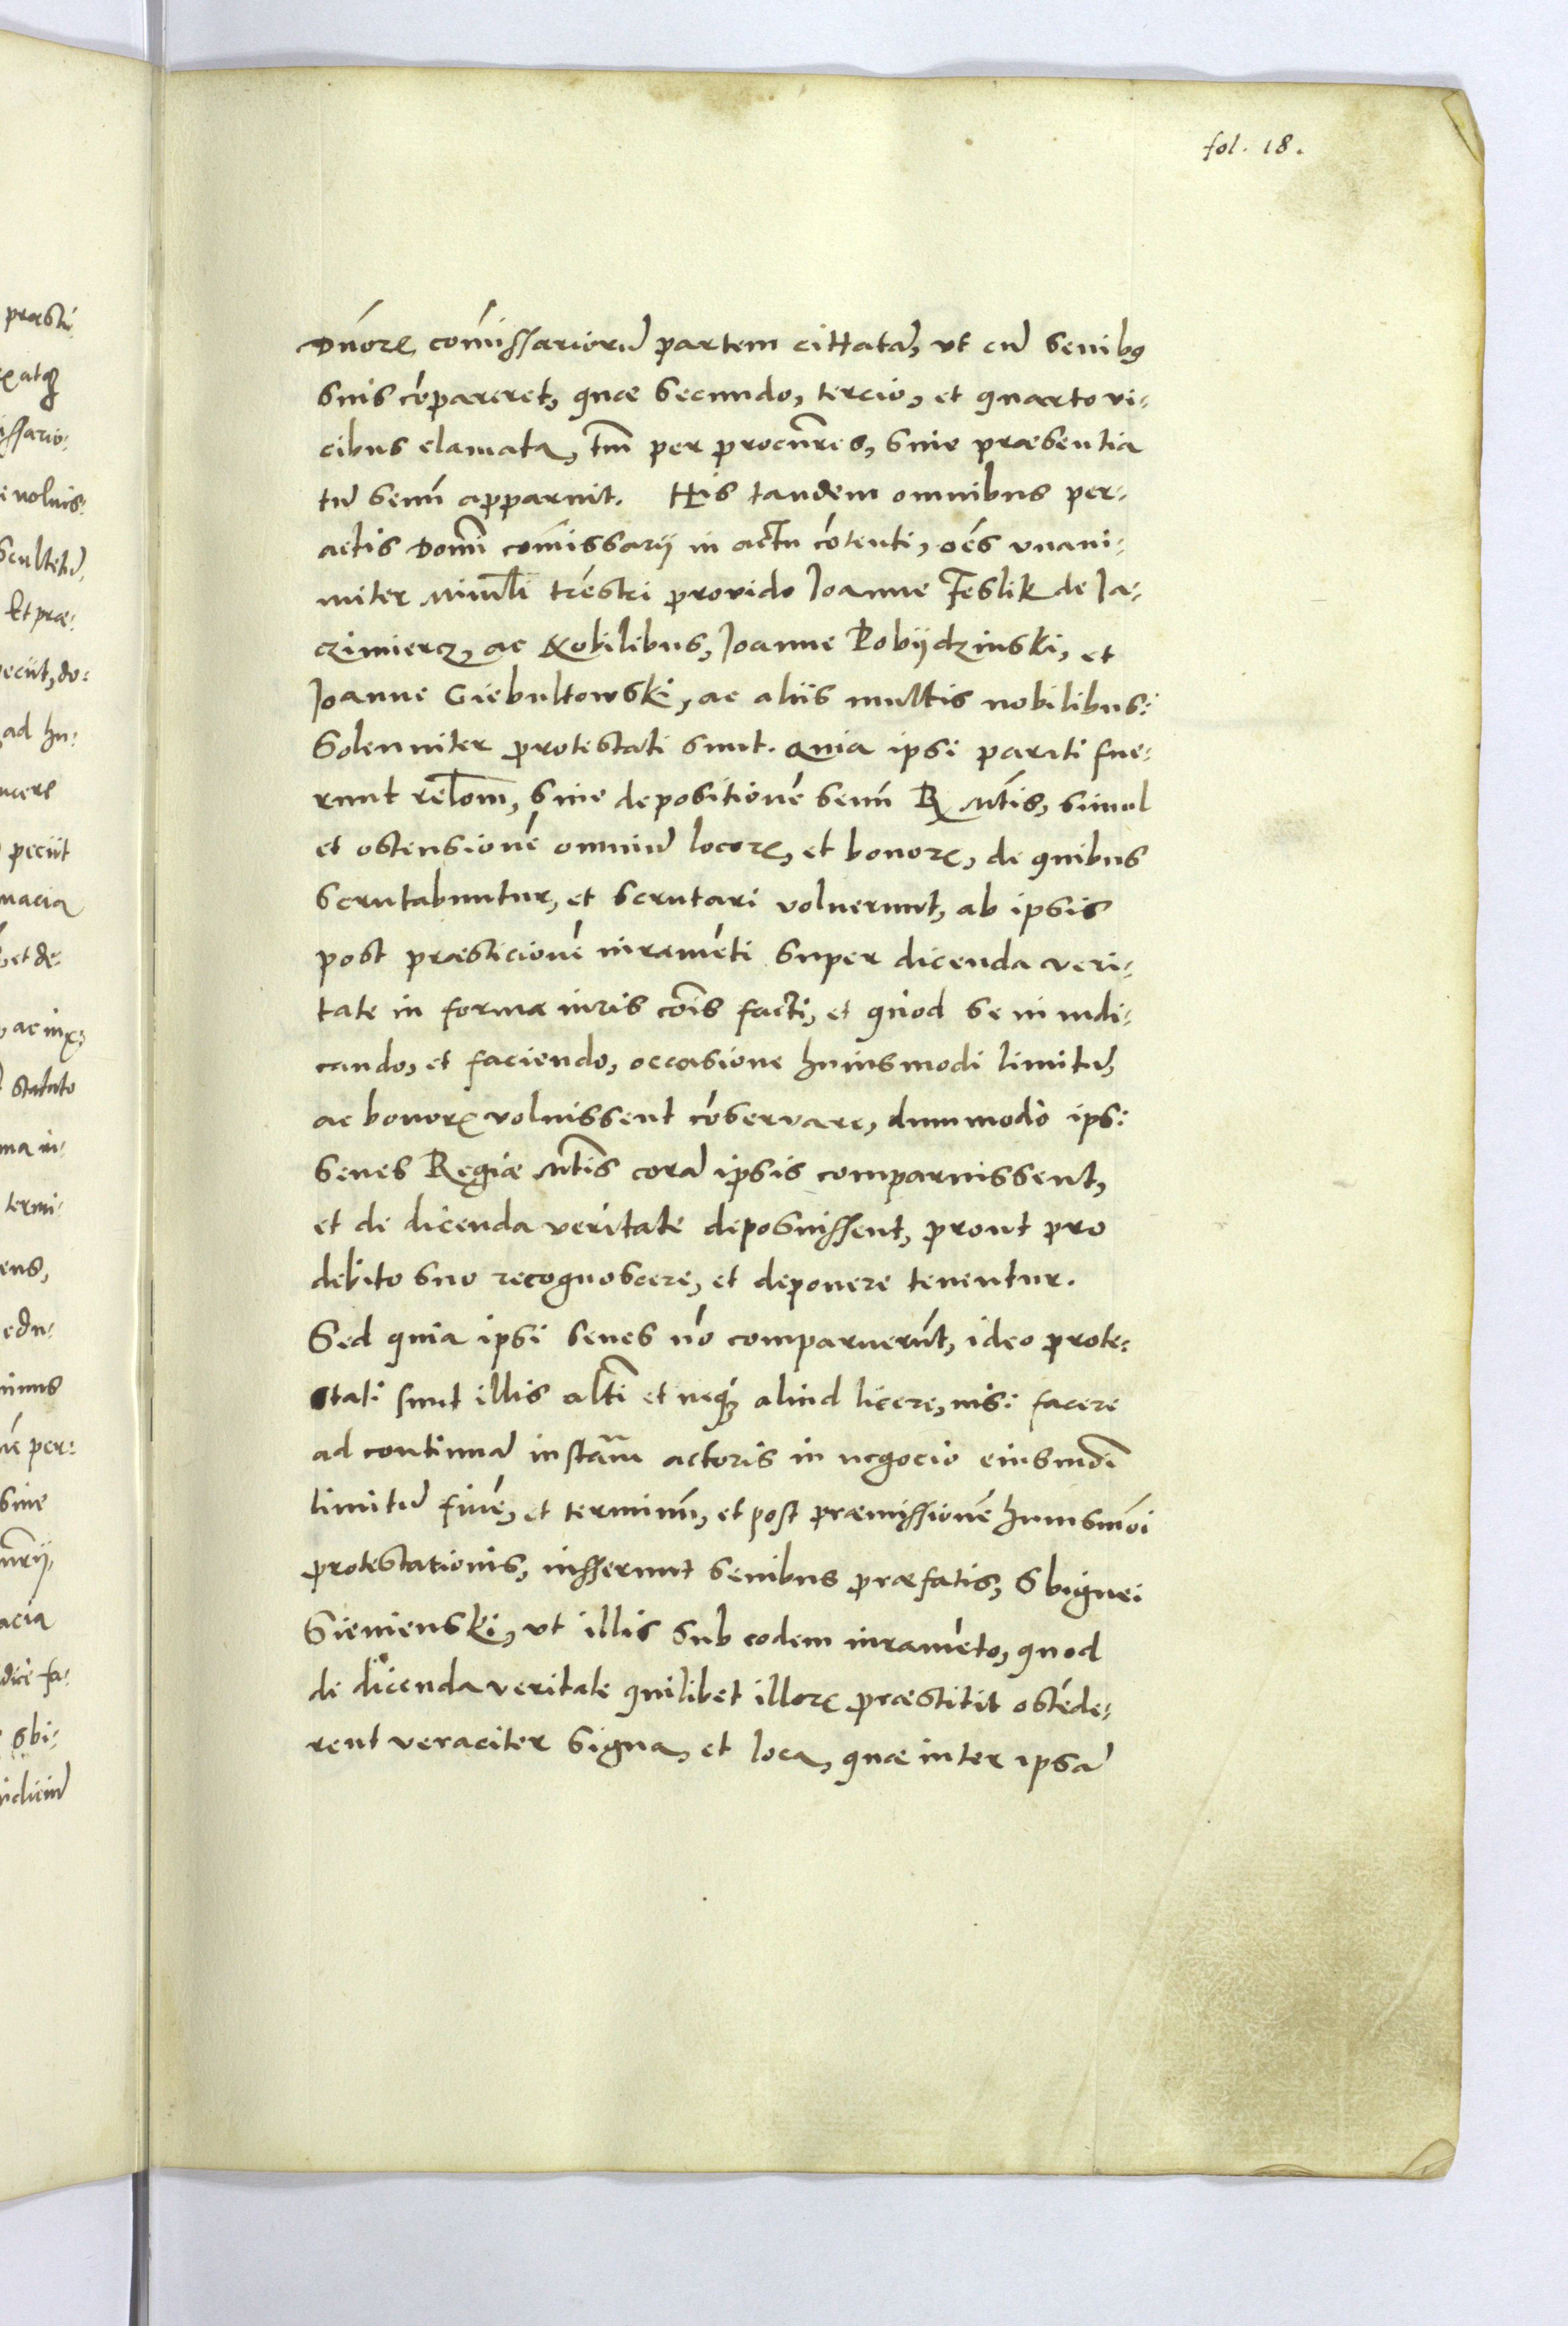 fol. 18.
Dnórꝝ cómissariorũ partem cittatã, vt cũ senibꝰ
suis cópareret, quæ secundo, tercio, et quarto vi-
cibus clamata, tm̃ per procures, sine præsentia
tũ senũ apparuit. His tandem omnibus per-
actis Domĩ comissarij in actu cótenti, oẽs vnani-
miter
provido Ioanne Feslik de Ia-
czimiercz, ac Nobilibus, Ioanne Pobijdzinski, et
Ioanne Giebultowski, ac aliis multis nobilibus:
Solenniter protestati sunt. Quia ipsi parati fue-
runt relõm, sine depositioné senũ R Mtis, simul
et ostensioné omniũ locorꝝ, et bonorꝝ, de quibus
scrutabuntur, et scrutari voluerunt, ab ipsis
post præsticioné iuraméti super dicenda veri-
tate in forma iuris cõis facti, et quod se in iudi-
cando, et faciendo, occasione huiusmodi limitũ,
ac bonorꝝ voluissent cóservare, dummodo ipsi
senes Regiæ Mtis corã ipsis comparuissent,
et de dicenda veritate deposuissent, prout pro
debito suo recognoscere, et deponere tenentur.
Sed quia ipsi senes nó comparuerũt, ideo prote-
stati sunt illis alti et neqꝫ aliud licere, nisi facere
ad continuã instãm actoris in negocio eiusmõi
limitũ finé, et terminũ, et post præmissioné huiusmõi
protestationis, iusserunt senibus præfatis, Sbignei
Sienienski, vt illis sub eodem iuraméto, quod
de dicenda veritate quilibet illorꝝ præstitit ostéde-
rent veraciter signa, et loca, quæ inter ipsã